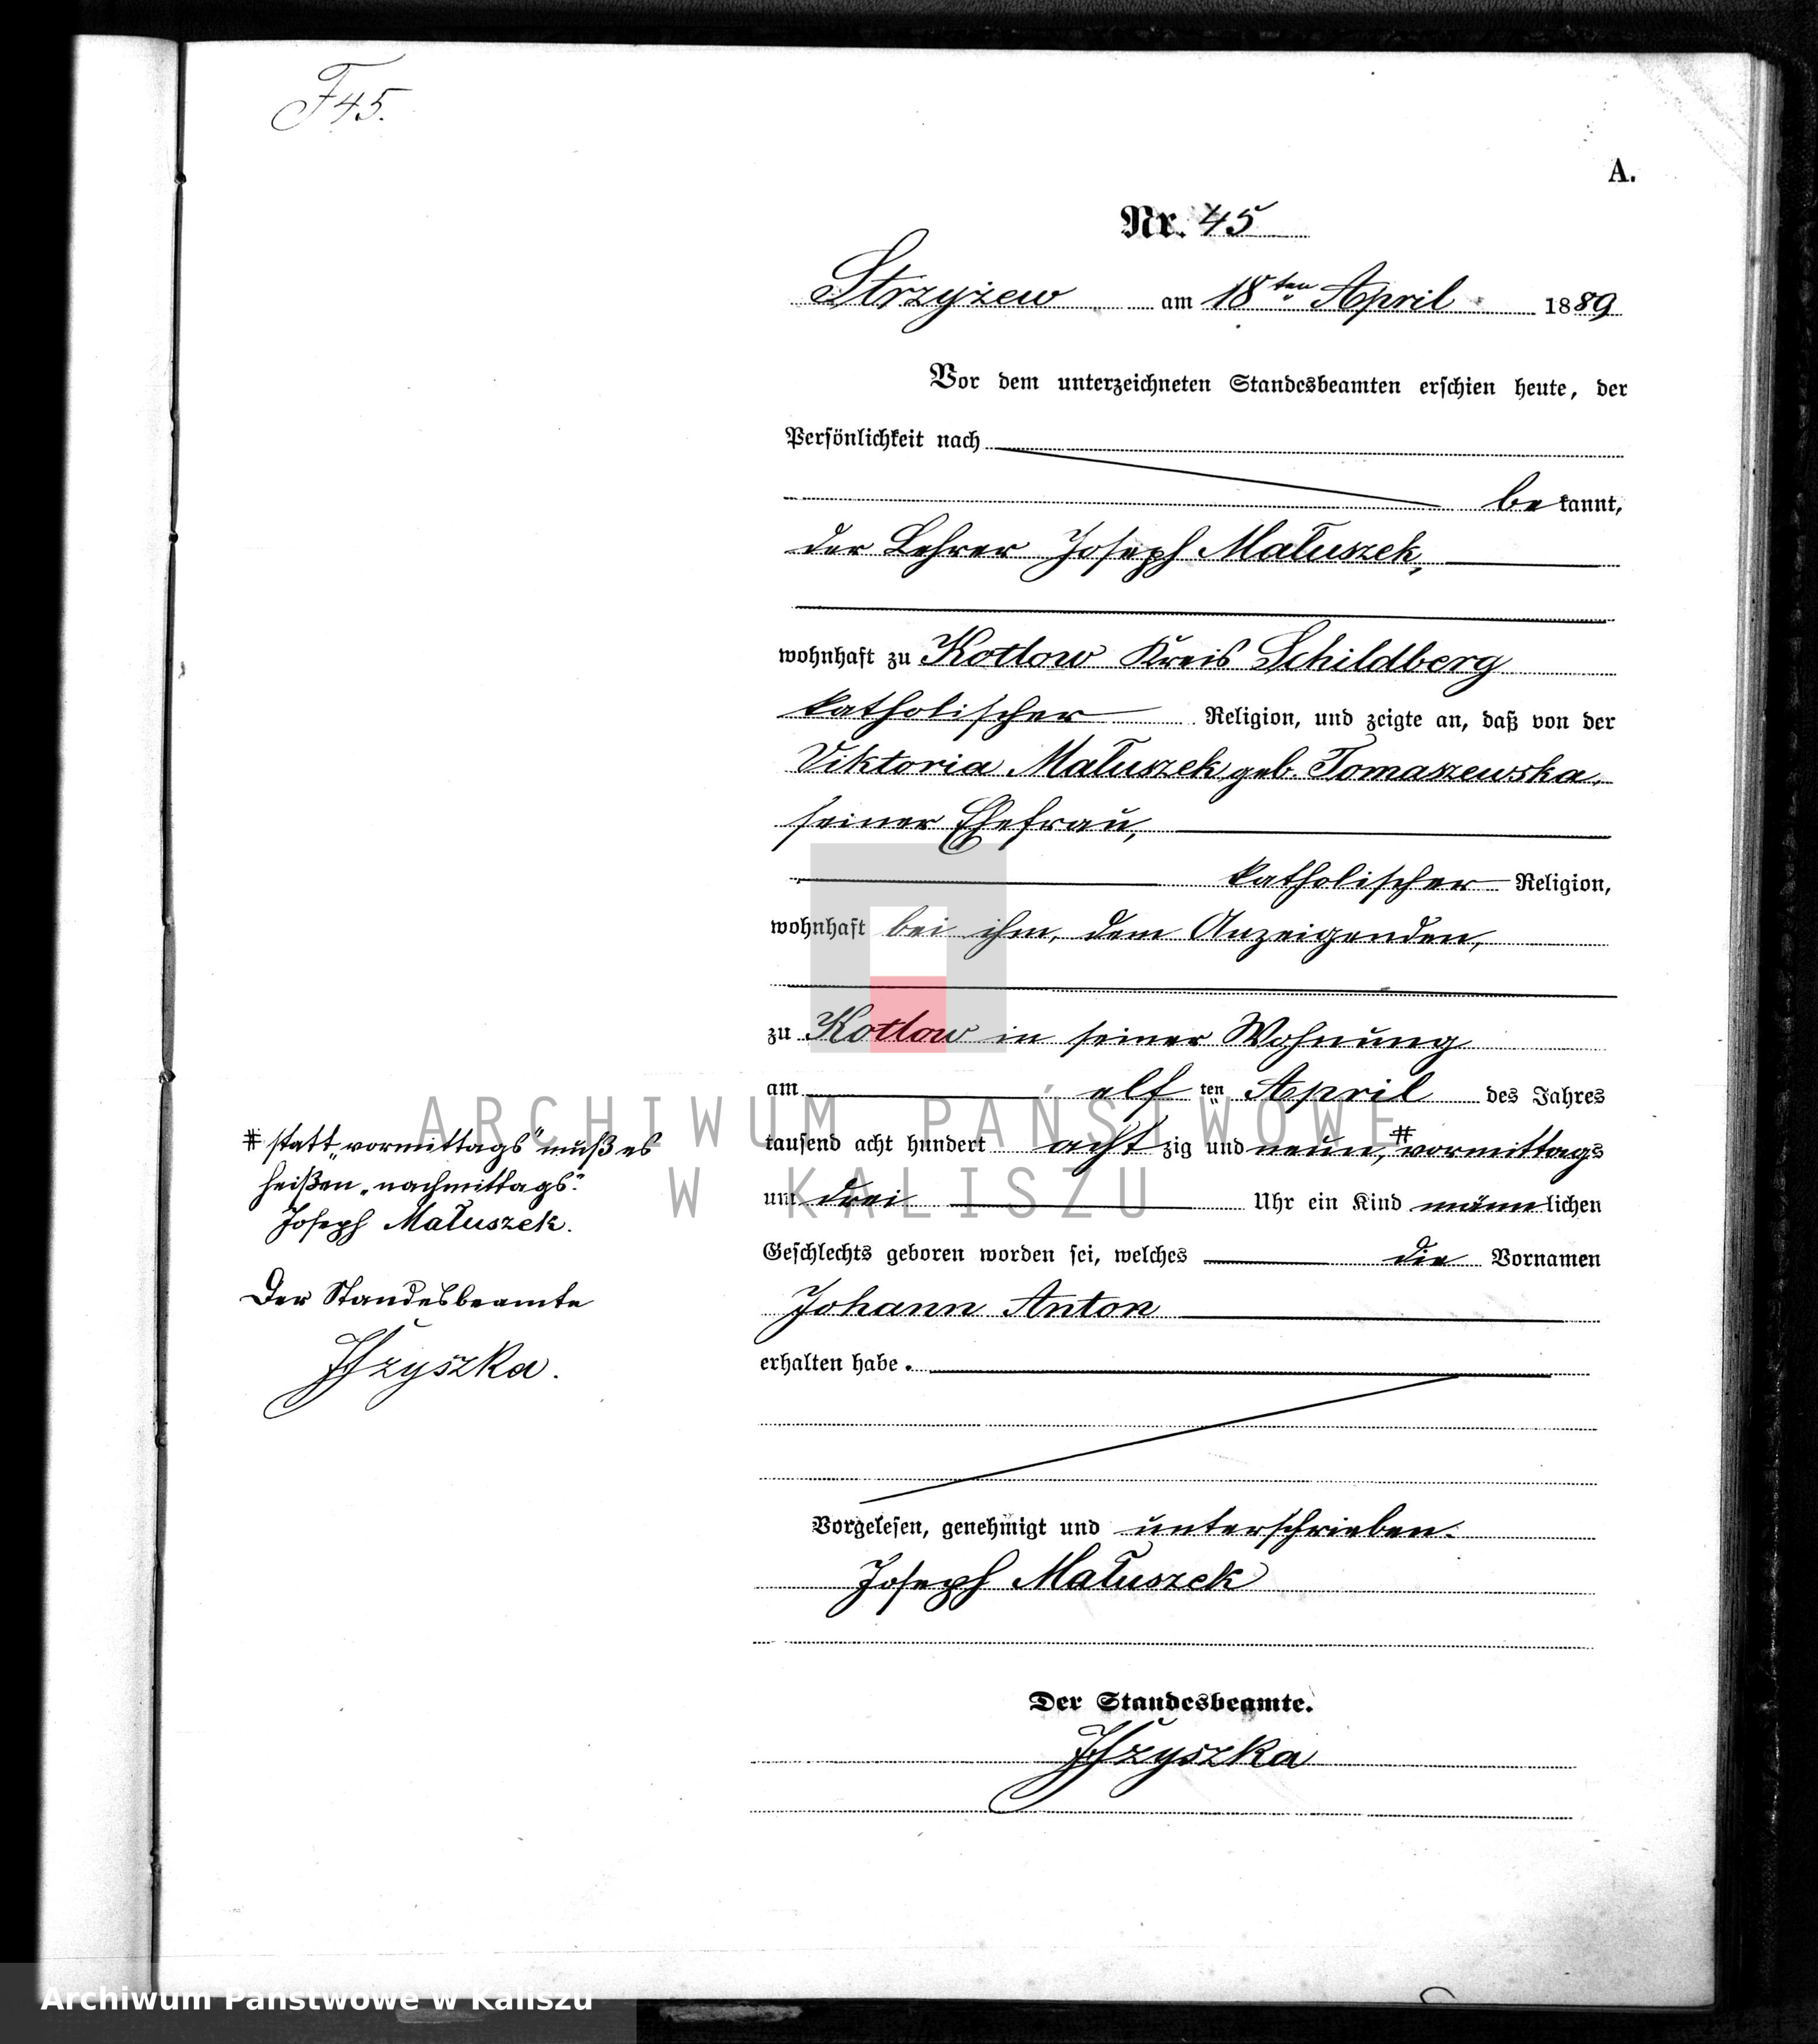 F 45.
A.
Nr. 45
Strzyżew am 18ten April 1889
Vor dem unterzeichneten Standesbeamten erschien heute, der
Persönlichkeit nach
bekannt,
der Lehrer Joseph Małuszek,
wohnhaft zu Kotlow Kreis Schildberg
katholischer Religion, und zeigte an, daß von der
Viktoria Małuszek geb. Tomaszewska,
seiner Ehefrau,
katholischer Religion,
wohnhaft bei ihm, dem Anzeigenden,
zu Kotlow in seiner Wohnung
am elften April des Jahres
tausend acht hundert achtzig und neun, # vormittags
um drei Uhr ein Kind männlichen
Geschlechts geboren worden sei, welches die Vornamen
Johann Anton
erhalten habe.
# statt „vormittags" muß es
heißen „nachmittags".
Joseph Małuszek.
Der Standesbeamte
Vorgelesen, genehmigt und unterschrieben.
Joseph Małuszek
Der Standesbeamte.
ARCHIWUM PAŃSTWOWE
W KALISZU
Archiwum Państwowe w Kaliszu